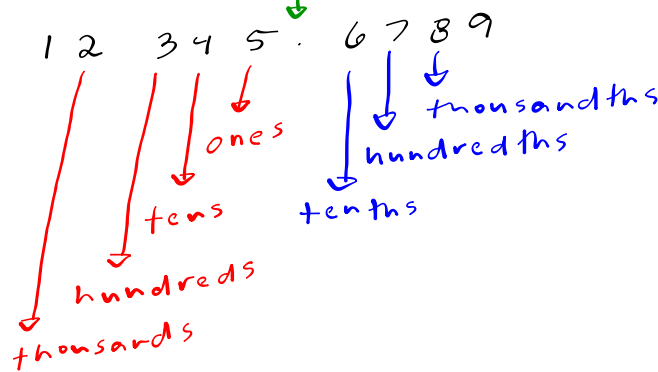 12 345.6789
thousandths
ones
hundredths
tens
tenths
hundreds
thousands